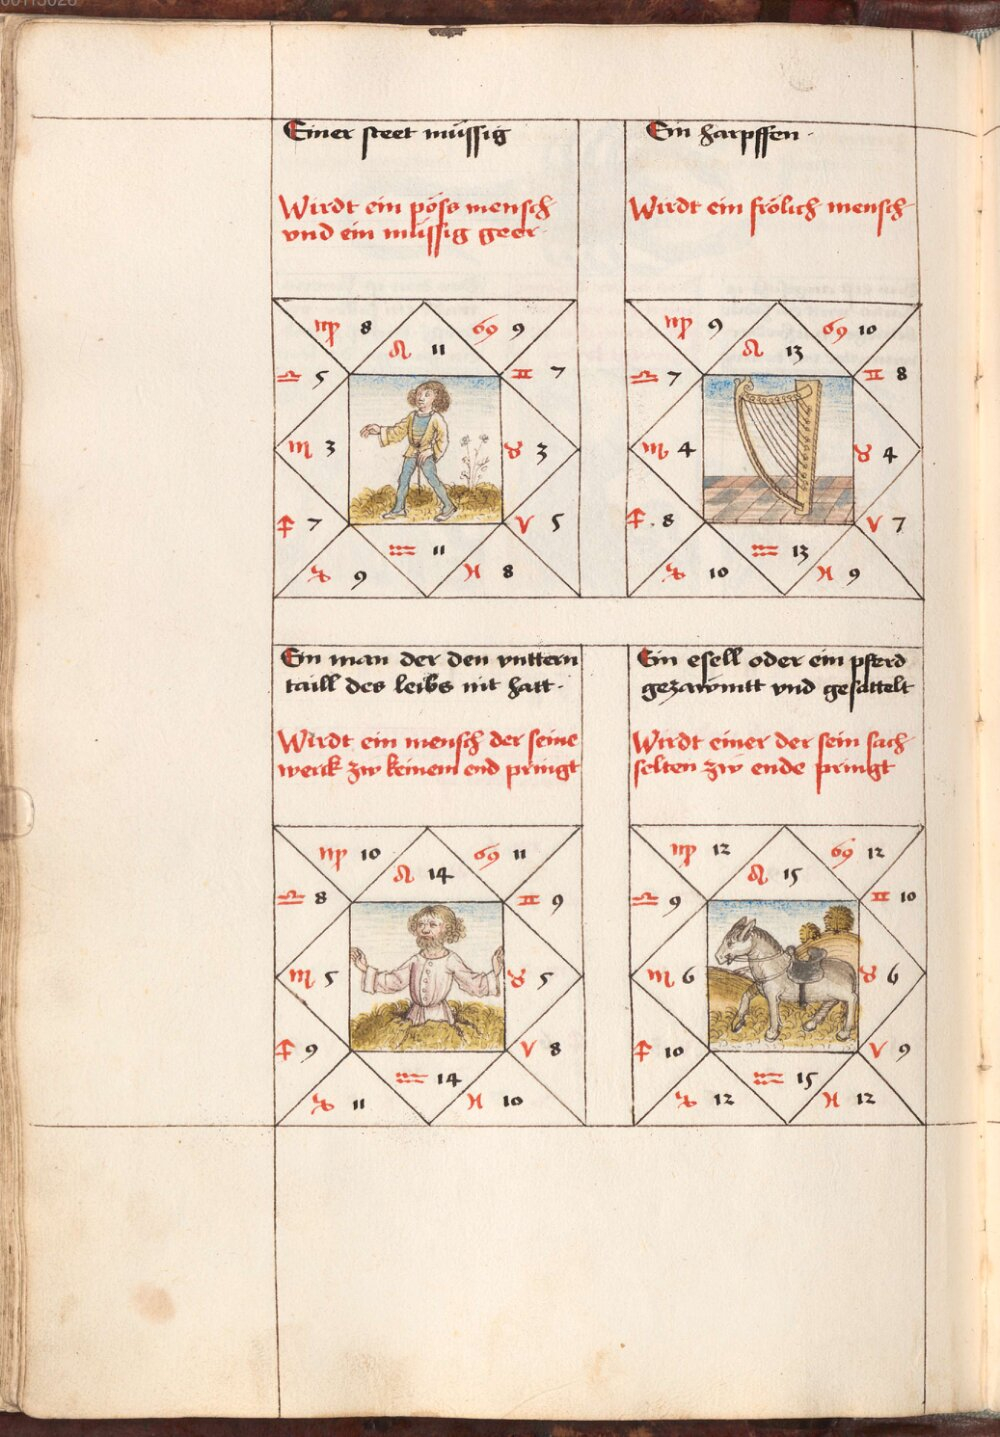 Einer steet müssig
Wirdt ein pöss mensch
vnd ein müssig geer
♍ 8
♌ 11
♋ 9
♎ 5
♊ 7
♏ 3
♉ 3
♐ 7
♈ 5
♑ 9
♒ 11
♓ 8
Ein harpffen
Wirdt ein frölich mensch
♍ 9
♌ 13
♋ 10
♎ 7
♊ 8
♏ 4
♉ 4
♐ 8
♈ 7
♑ 10
♒ 13
♓ 9
Ein man der den vnttern
taill des leibs nit hatt
Wirdt ein mensch der seine
werck zw keinem end pringt
♍ 10
♌ 14
♋ 11
♎ 8
♊ 9
♏ 5
♉ 5
♐ 9
♈ 8
♑ 11
♒ 14
♓ 10
Ein esell oder ein pferd
gezawmtt vnd gesattelt
Wirdt einer der sein sach
selten zw ende pringt
♍ 12
♌ 15
♋ 12
♎ 9
♊ 10
♏ 6
♉ 6
♐ 10
♈ 9
♑ 12
♒ 15
♓ 12